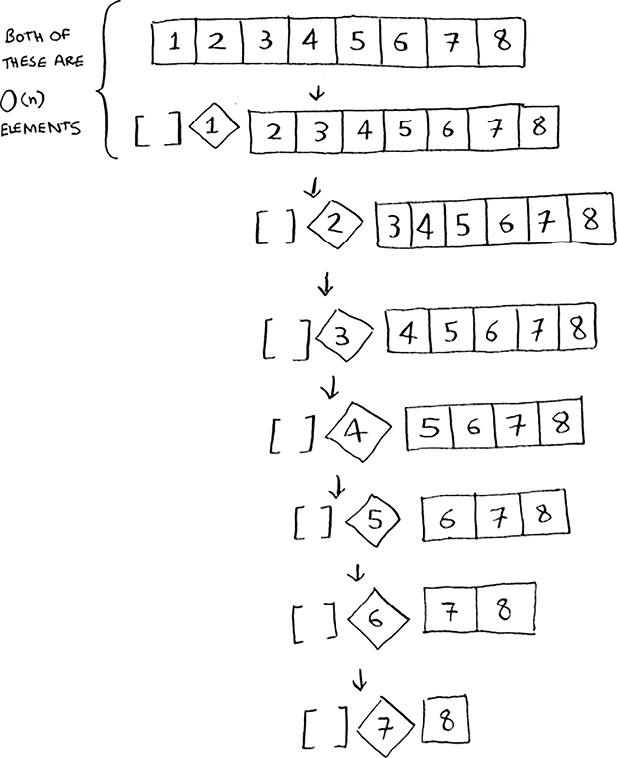 BOTH OF
THESE ARE
O(n)
ELEMENTS
1 2 3 4 5 6 7 8
[ ] 1 2 3 4 5 6 7 8
[ ] 2 3 4 5 6 7 8
[ ] 3 4 5 6 7 8
[ ] 4 5 6 7 8
[ ] 5 6 7 8
[ ] 6 7 8
[ ] 7 8